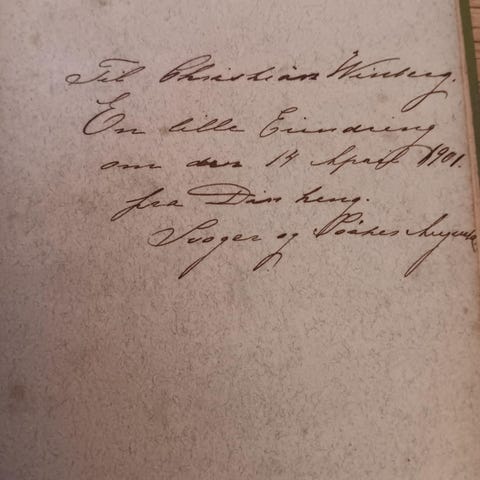 Til Christian Winberg.
En lille Erindring
om den 14 April 1901.
fra Din heng.
Svoger og